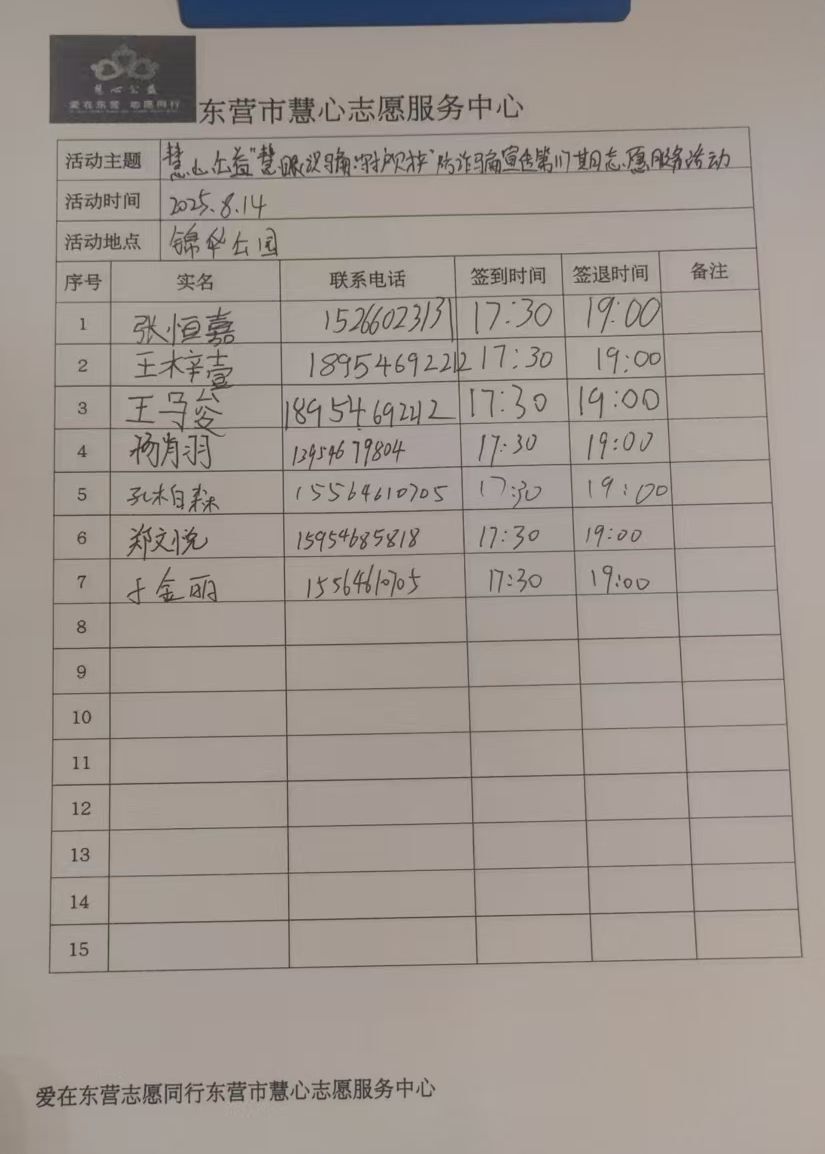 慧心公益
爱在东营 志愿同行
东营市慧心志愿服务中心
活动主题 慧心公益"慧眼识骗·守护权" 防诈骗宣传第117期志愿服务活动
活动时间 2025.8.14
活动地点 锦华公园
序号 实名 联系电话 签到时间 签退时间 备注
1 张恒嘉 15266023131 17:30 19:00
2 王梓壹 18954692212 17:30 19:00
3 王 18954692212 17:30 19:00
4 杨肖羽 13954679804 17:30 19:00
5 孔柏森 15564610705 17:30 19:00
6 郑文悦 15954685818 17:30 19:00
7 于金丽 15564610705 17:30 19:00
8
9
10
11
12
13
14
15
爱在东营志愿同行东营市慧心志愿服务中心